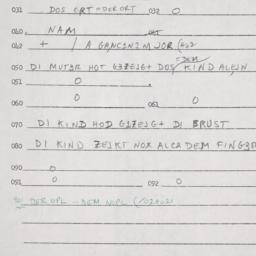 031 DOS ORT = DER ORT 032 0
040. NAM 041
042 + / A GANCINIM JOR (462
= DEM
050 DI MUTER HOT GEZEIGT DOS KIND ALEJN
051 0
060 0 061 0
070 DI KIND HOD GEZEIGT DI BRUST
080 DI KIND ZEJKT NOX ALCA DEM FINGER
090 0
091 0 092 0
DER OPL - DEM NOPL